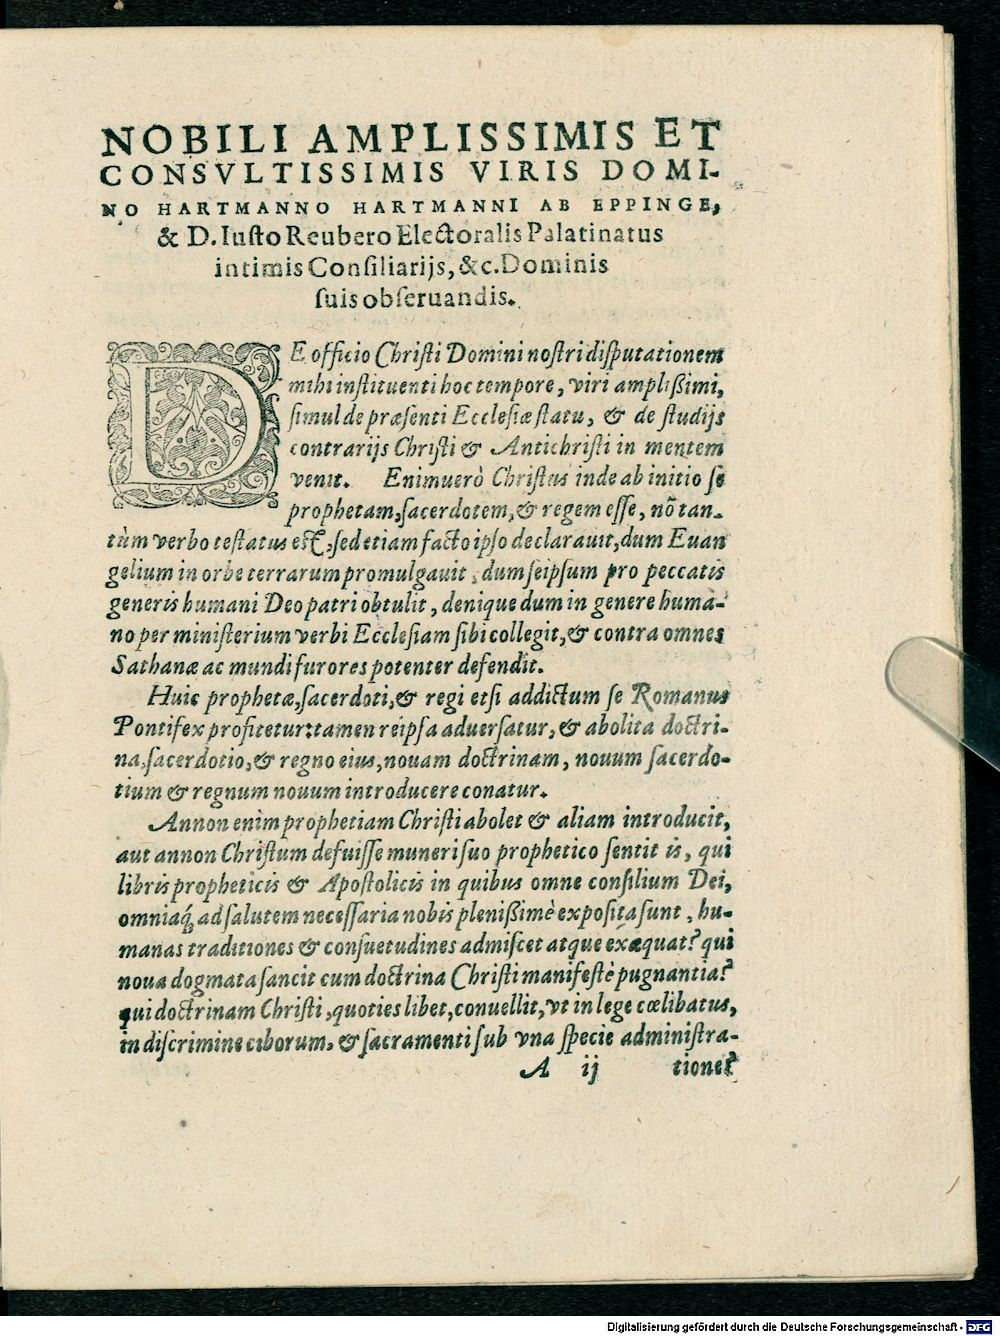 NOBILI AMPLISSIMIS ET
CONSVLTISSIMIS VIRIS DOMI-
NO HARTMANNO HARTMANNI AB EPPINGE,
& D. Iusto Reubero Electoralis Palatinatus
intimis Consiliarijs, &c. Dominis
suis obseruandis.
DE officio Christi Domini nostri disputationem
mihi instituenti hoc tempore, viri amplißimi,
simul de præsenti Ecclesiæ statu, & de studijs
contrarijs Christi & Antichristi in mentem
venit. Enimuerò Christus inde ab initio se
prophetam, sacerdotem, & regem esse, nõ tan-
tùm verbo testatus est, sed etiam facto ipso declarauit, dum Euan
gelium in orbe terrarum promulgauit, dum seipsum pro peccatis
generis humani Deo patri obtulit, denique dum in genere huma-
no per ministerium verbi Ecclesiam sibi collegit, & contra omnes
Sathanæ ac mundi furores potenter defendit.
Huic prophetæ, sacerdoti, & regi etsi addictum se Romanus
Pontifex profitetur: tamen reipsa aduersatur, & abolita doctri-
na, sacerdotio, & regno eius, nouam doctrinam, nouum sacerdo-
tium & regnum nouum introducere conatur.
Annon enim prophetiam Christi abolet & aliam introducit,
aut annon Christum defuisse muneri suo prophetico sentit is, qui
libris propheticis & Apostolicis in quibus omne consilium Dei,
omniaq́; ad salutem necessaria nobis plenißimè exposita sunt, hu-
manas traditiones & consuetudines admiscet atque exæquat? qui
noua dogmata sancit cum doctrina Christi manifestè pugnantia?
qui doctrinam Christi, quoties libet, conuellit, vt in lege cœlibatus,
in discrimine ciborum, & sacramenti sub vna specie administra-
A ij tione?
Digitalisierung gefördert durch die Deutsche Forschungsgemeinschaft - DFG